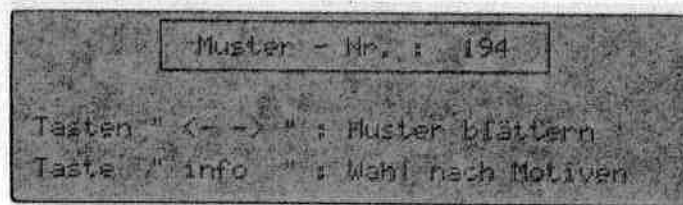 Muster - Nr. : 194
Tasten " <- -> " : Muster blättern
Taste " info " : Wahl nach Motiven